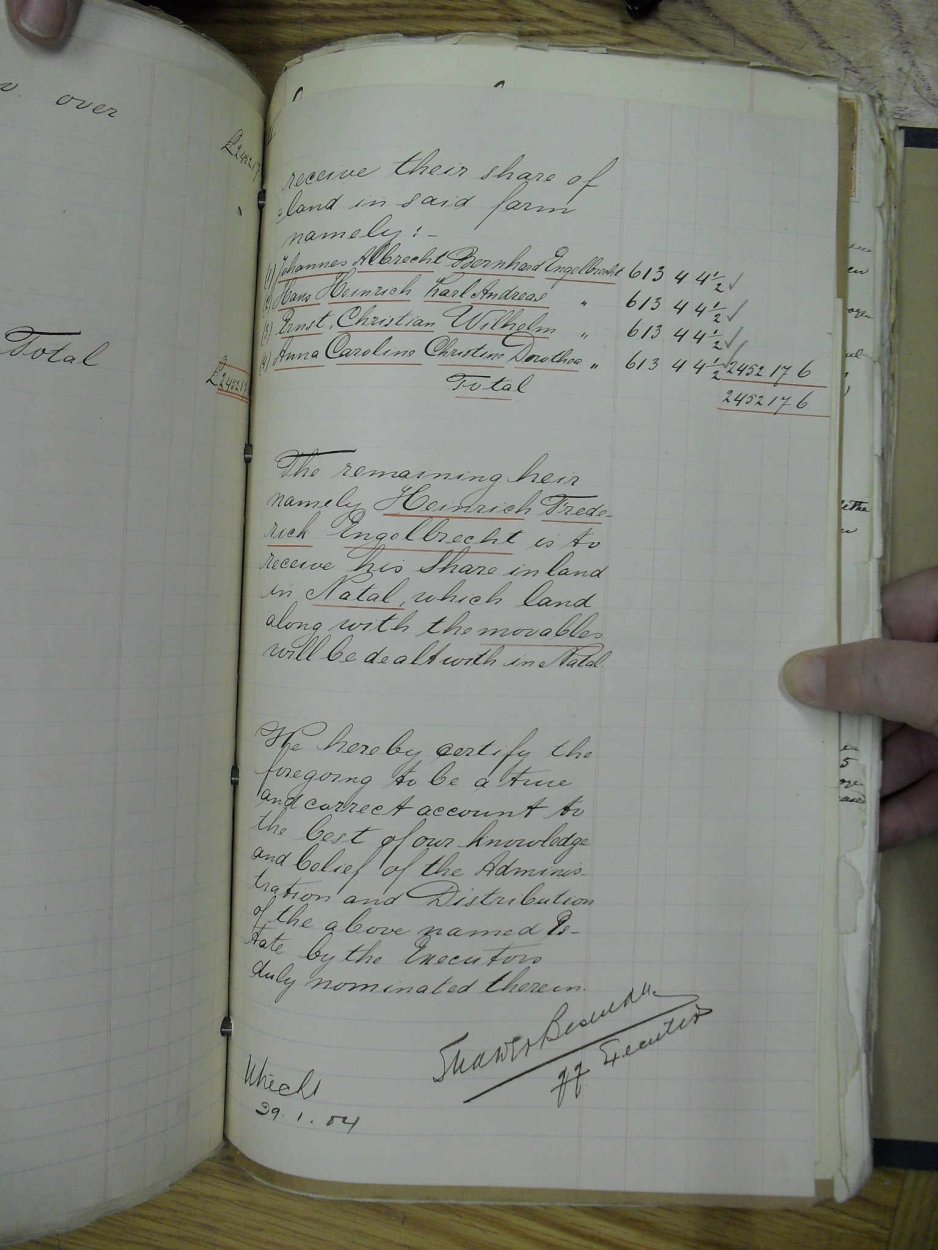 over
£2452.17
Total
£2452.17
receive their share of
land in said farm
namely :-
(1) Johannes Albrecht Bernhard Engelbrecht 613 4 4½ ✓
(2) Hans Heinrich Karl Andreas " 613 4 4½ ✓
(3) Ernst Christian Wilhelm " 613 4 4½ ✓
(4) Anna Caroline Christine Dorothea " 613 4 4½ ✓ 2452 17 6
Total 2452 17 6
The remaining heir
namely Heinrich Frede-
rick Engelbrecht is to
receive his share in land
in Natal, which land
along with the movables
will be dealt with in Natal
We hereby certify the
foregoing to be a true
and correct account to
the best of our knowledge
and belief of the Adminis-
tration and Distribution
of the above named Es-
tate by the Executors
duly nominated therein.
qq Executors
Utrecht
29.1.04